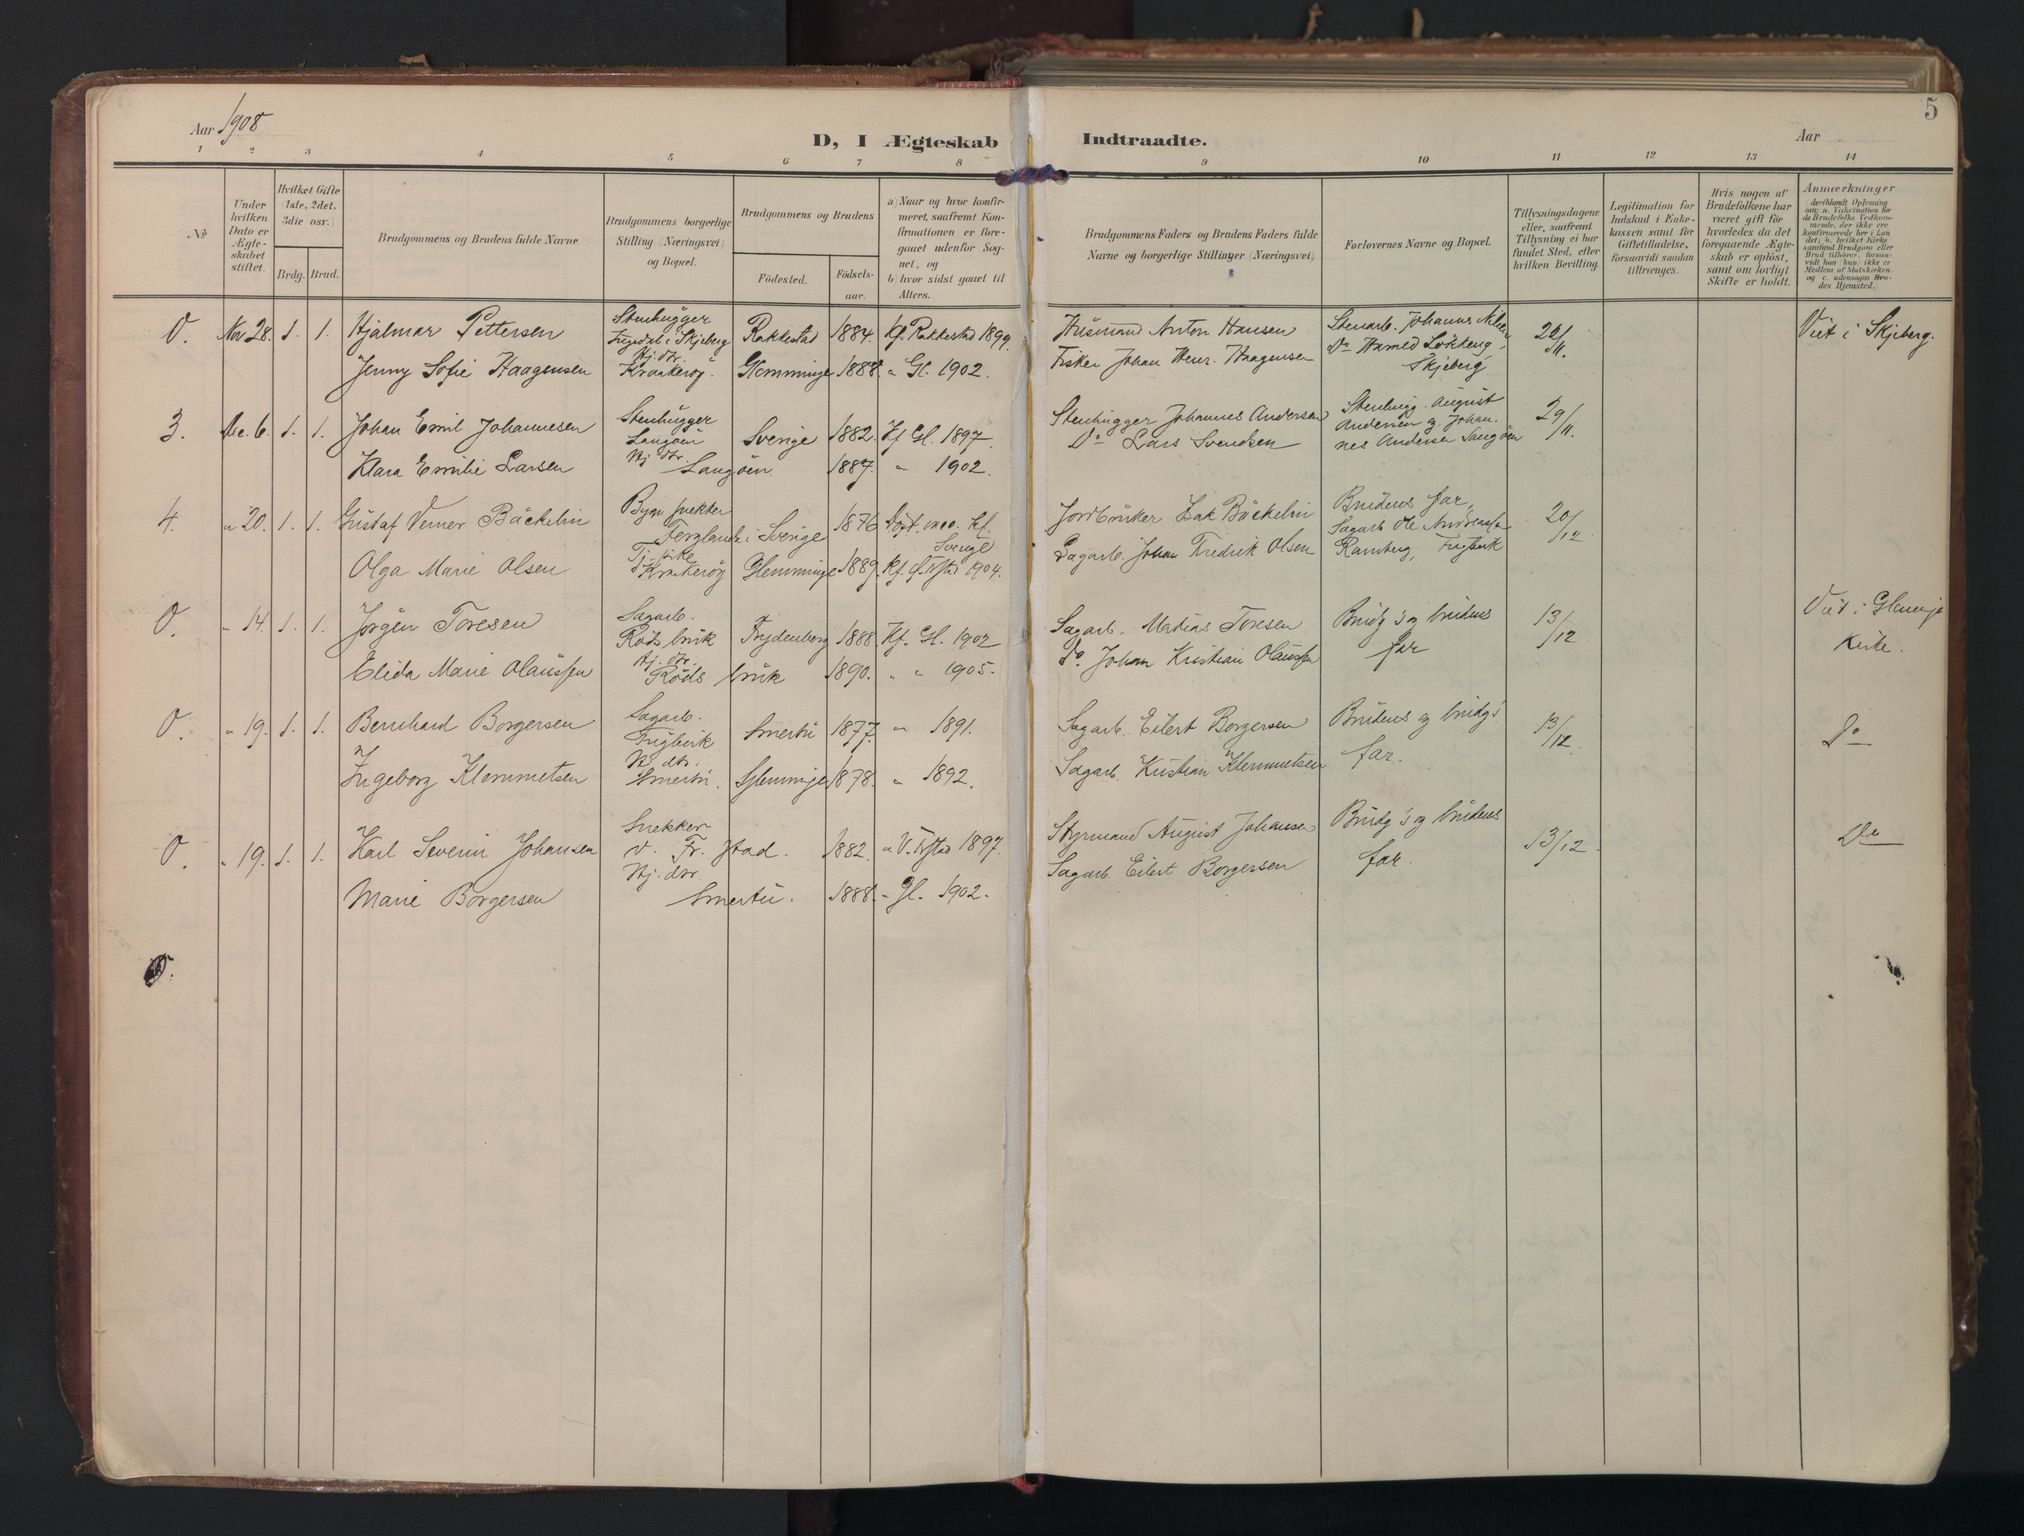 5
Aar 1908
D, I Ægteskab Indtraadte.
Aar
1 2 3 4 5 6 7 8 9 10 11 12 13 14
No
Under hvilken Dato er Ægteskabet stiftet.
Hvilket Gifte (1ste, 2det, 3die osv.)
Brdg. Brud.
Brudgommens og Brudens fulde Navne
Brudgommens borgerlige Stilling (Næringsvei) og Bopæl.
Brudgommens og Brudens
Födested.
Födselsaar.
a) Naar og hvor konfirmeret, saafremt Konfirmationen er foregaaet udenfor Sognet, og
b) hvor sidst gaaet til Alters.
Brudgommens Faders og Brudens Faders fulde Navne og borgerlige Stillinger (Næringsvei)
Forlovernes Navne og Bopæl.
Tillysningsdagene eller, saafremt Tillysning ei har fundet Sted, efter hvilken Bevilling.
Legitimation for Indskud i Enkekassen samt for Giftetilladelse, forsaavidt saadan tiltrænges.
Hvis nogen af Brudefolkene har været gift för hvorledes da det foregaaende Ægteskab er oplöst, samt om lovligt Skifte er holdt.
Anmærkninger
0. Nov 28. 1. 1. Hjalmar Pettersen Stenhugger Rakkestad 1884. Kf. Rakkestad 1899. Husmand Anton Hansen Stenarb. Johannes Nilsen 22/11. Viet i Skjeberg.
i Skjeberg
Hj. dtr.
Jenny Sofie Haagensen Kraakeröy. Glemminge 1888. " Gl. 1902. Fisker Johan Henr. Haagensen Do Skjeberg
3. De. 6. 1. 1. Johan Emil Johannesen Stenhugger Langöen Sverige 1882. Kf Gl. 1897. Stenhugger Johannes Andersen Stenhugg. August Andersen og Johannes Andersen Langöen 29/11.
Hj. dtr.
Klara Emilie Larsen Langöen 1887. " 1902. Do Lars Svendsen
4. " 20. 1. 1. Gustaf Verner Bäckelin i Sverige 1876 Kf. Sverige Jordbruker Bäckelin Brudens far, Sagarb. Ole 20/12
Olga Marie Olsen Kraakeröy Glemminge 1889. Kf. 1904. Sagarb. Johan Fredrik Olsen Ramberg,
0. " 14. 1. 1. Jörgen Toresen Sagarb. Röds bruk Frydenberg 1888 Kf. Gl. 1902 Sagarb. Matias Toresen Brudg's og brudens far 13/12 Viet i Glemminge Kirke.
Hj. dtr.
Elida Marie Olaussen Röds bruk 1890. " " 1905. Do. Johan Kristian Olaussen
0. " 19. 1. 1. Bernhard Borgersen Sagarb. Smertu 1877. " 1891. Sagarb. Eilert Borgersen Brudens og brudg's far. 13/12. Do
Hj. dtr.
Ingeborg Klemmetsen Smertu. Glemminge 1878. " 1892. Sagarb. Kristian Klemmetsen
0. " 19. 1. 1. Karl Severin Johansen Snekker V. Fr. stad. 1882. " V. Frstad 1897. Styrmand August Johansen Brudg's og brudens far. 13/12. Do
Hj. dtr.
Marie Borgersen Smertu. 1888. " Gl. 1902. Sagarb. Eilert Borgersen